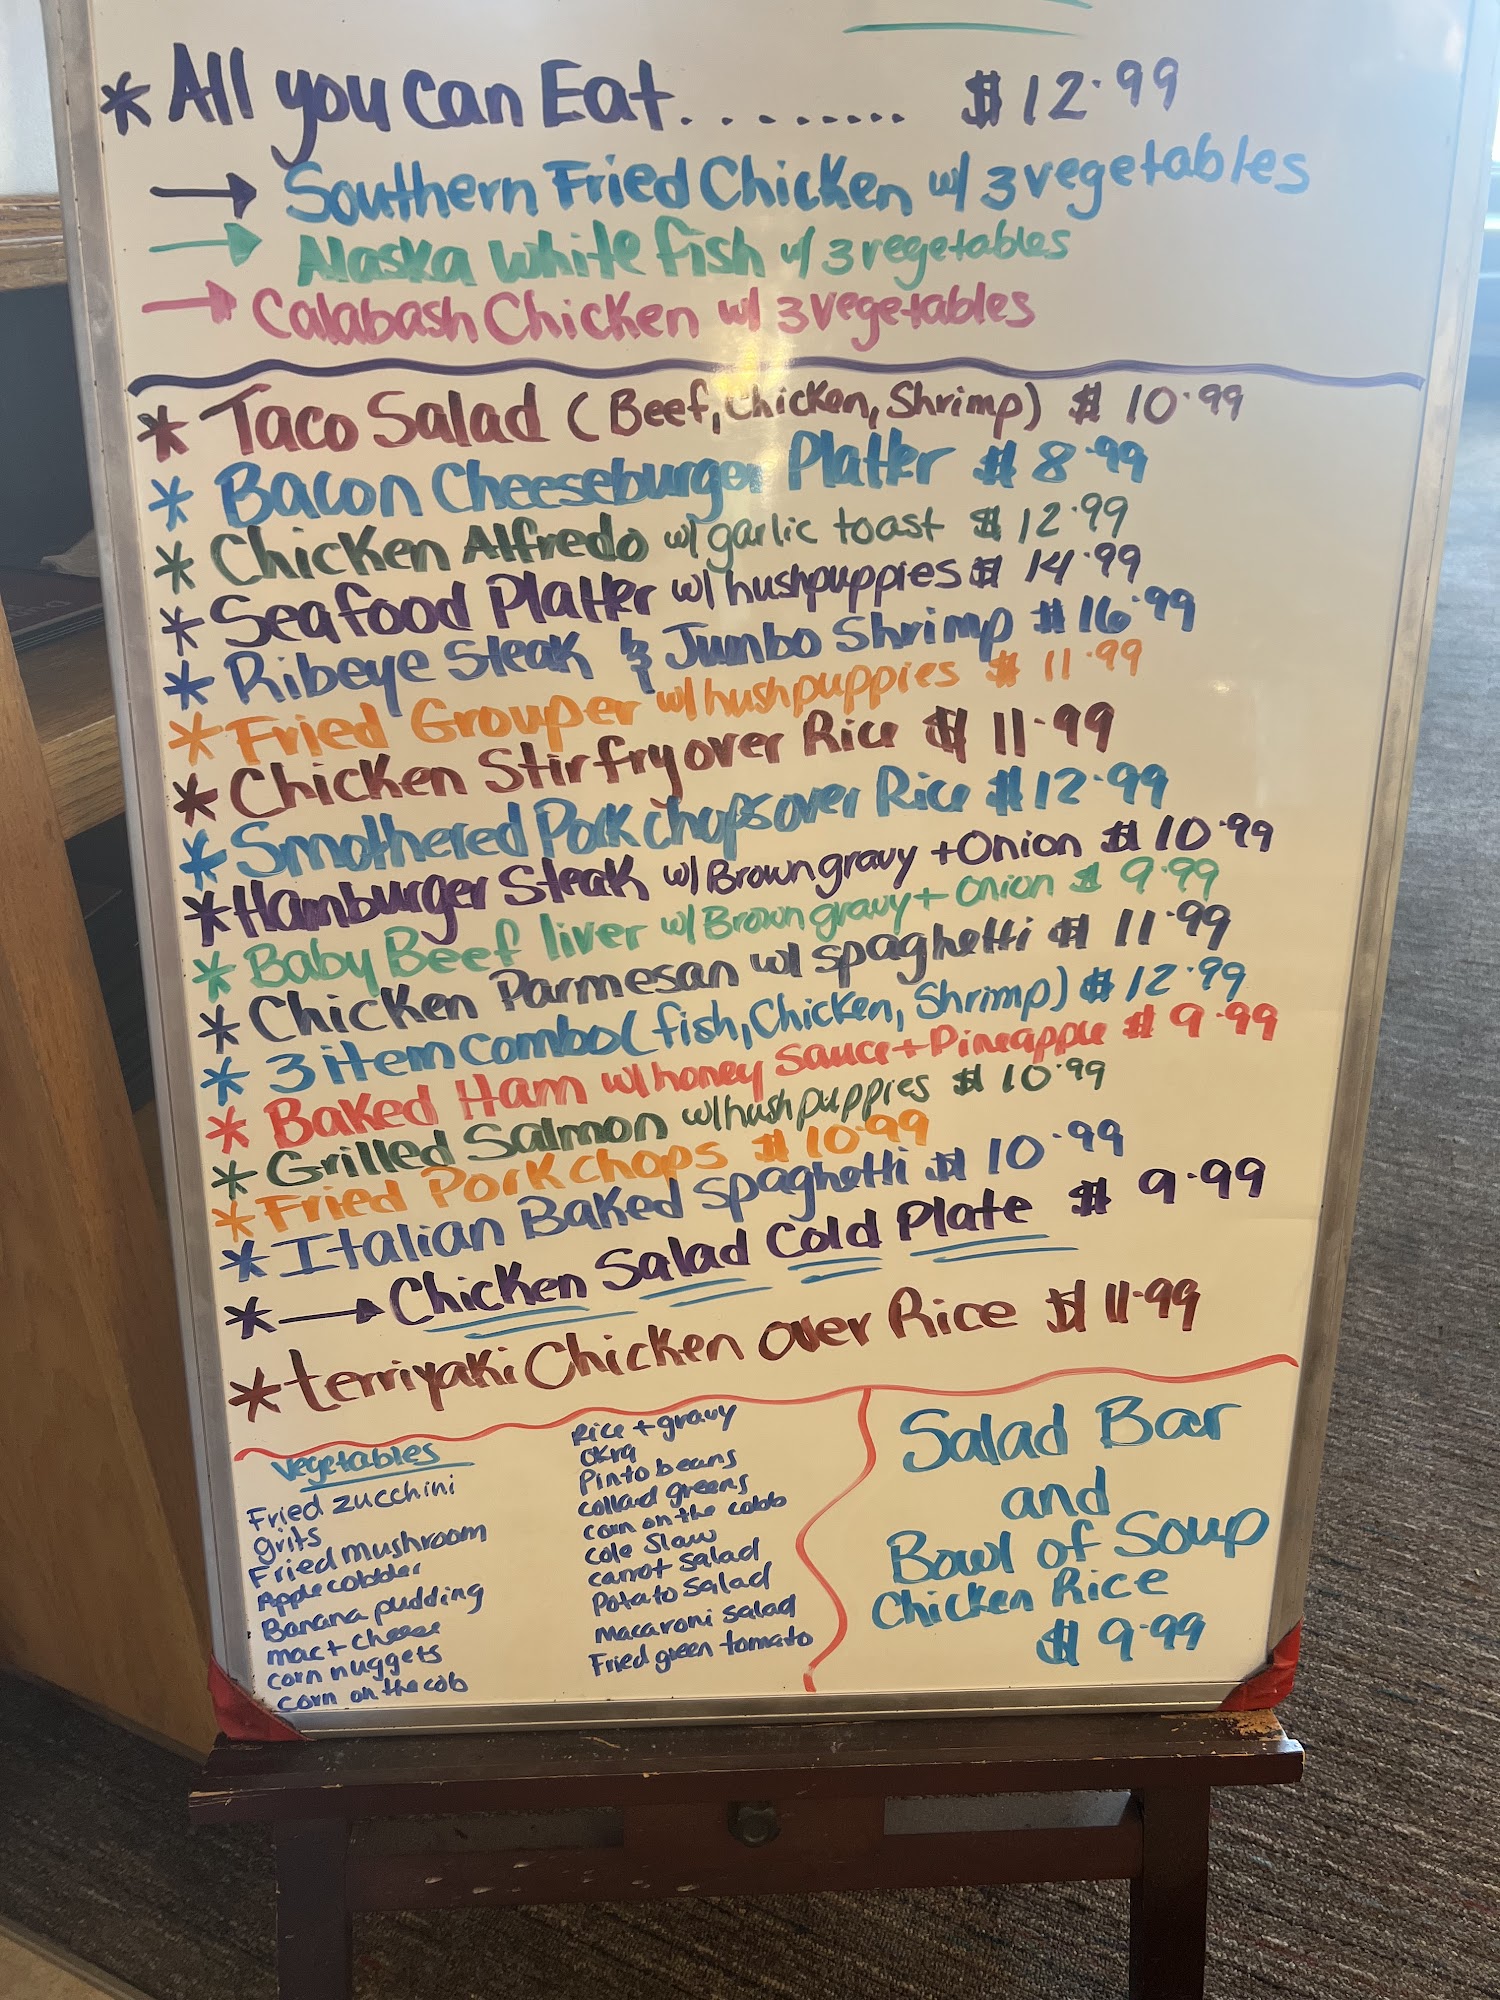 * All you can Eat......... $12.99
→ Southern Fried Chicken w/ 3 vegetables
→ Alaska White fish w/ 3 vegetables
→ Calabash Chicken w/ 3 vegetables
* Taco Salad (Beef, Chicken, Shrimp) $ 10.99
* Bacon Cheeseburger Platter $ 8.99
* Chicken Alfredo w/ garlic toast $ 12.99
* Seafood Platter w/ hushpuppies $ 14.99
* Ribeye Steak & Jumbo Shrimp $ 16.99
* Fried Grouper w/ hushpuppies $ 11.99
* Chicken Stirfry over Rice $ 11.99
* Smothered Pork chops over Rice $ 12.99
* Hamburger Steak w/ Brown gravy + Onion $ 10.99
* Baby Beef liver w/ Brown gravy + onion $ 9.99
* Chicken Parmesan w/ spaghetti $ 11.99
* 3 item combo (fish, Chicken, Shrimp) $ 12.99
* Baked Ham w/ honey Sauce + Pineapple $ 9.99
* Grilled Salmon w/ hushpuppies $ 10.99
* Fried Pork chops $ 10.99
* Italian Baked Spaghetti $ 10.99
* → Chicken Salad Cold Plate $ 9.99
* terriyaki Chicken over Rice $ 11.99
Vegetables
Fried zucchini
grits
Fried mushroom
Apple cobbler
Banana pudding
mac + cheese
corn nuggets
corn on the cob
Rice + gravy
Okra
Pinto beans
collard greens
corn on the cobb
cole slaw
carrot salad
Potato salad
macaroni salad
Fried green tomato
Salad Bar
and
Bowl of Soup
Chicken Rice
$ 9.99